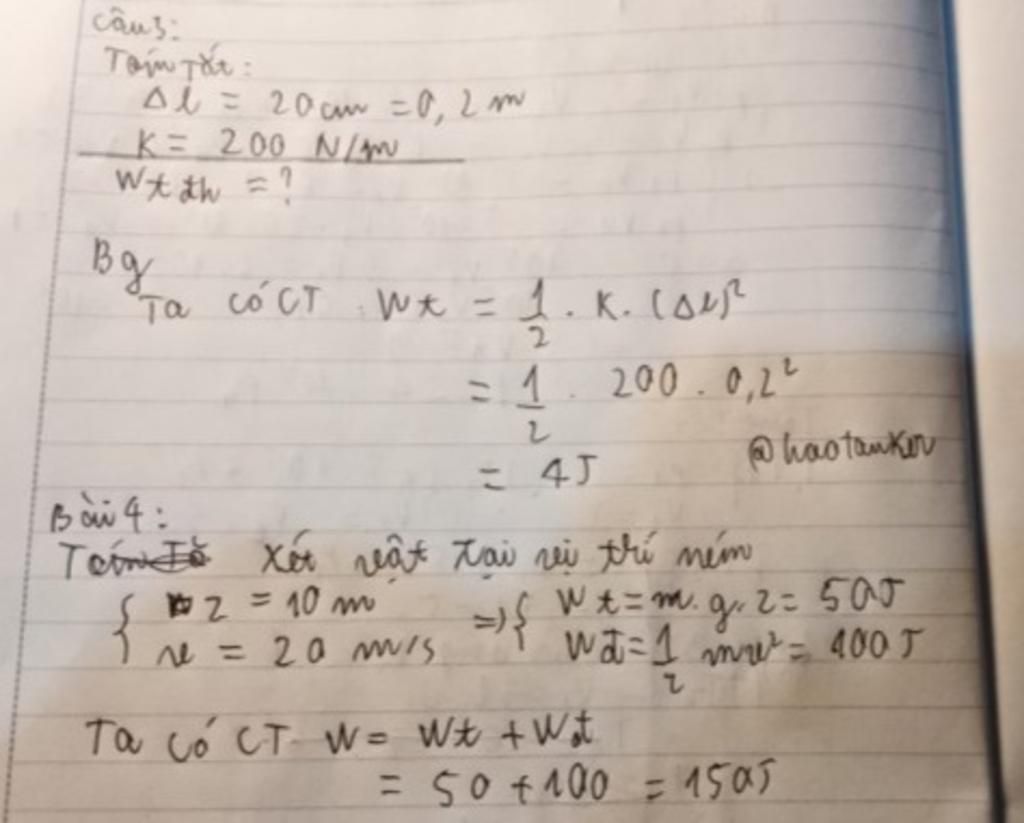 Câu 3:
Tóm tắt:
Δl = 20 cm = 0,2 m
K = 200 N/m
Wt đh = ?
Bg
Ta có CT Wt = 1/2 . K. (Δl)²
= 1/2 . 200 . 0,2²
= 4J
@haotanker
Bài 4:
Xét vật tại vị trí ném
{ z = 10 m => { Wt = m. g. z = 50J
v = 20 m/s Wđ = 1/2 mv² = 100J
Ta có CT W = Wt + Wđ
= 50 + 100 = 150J